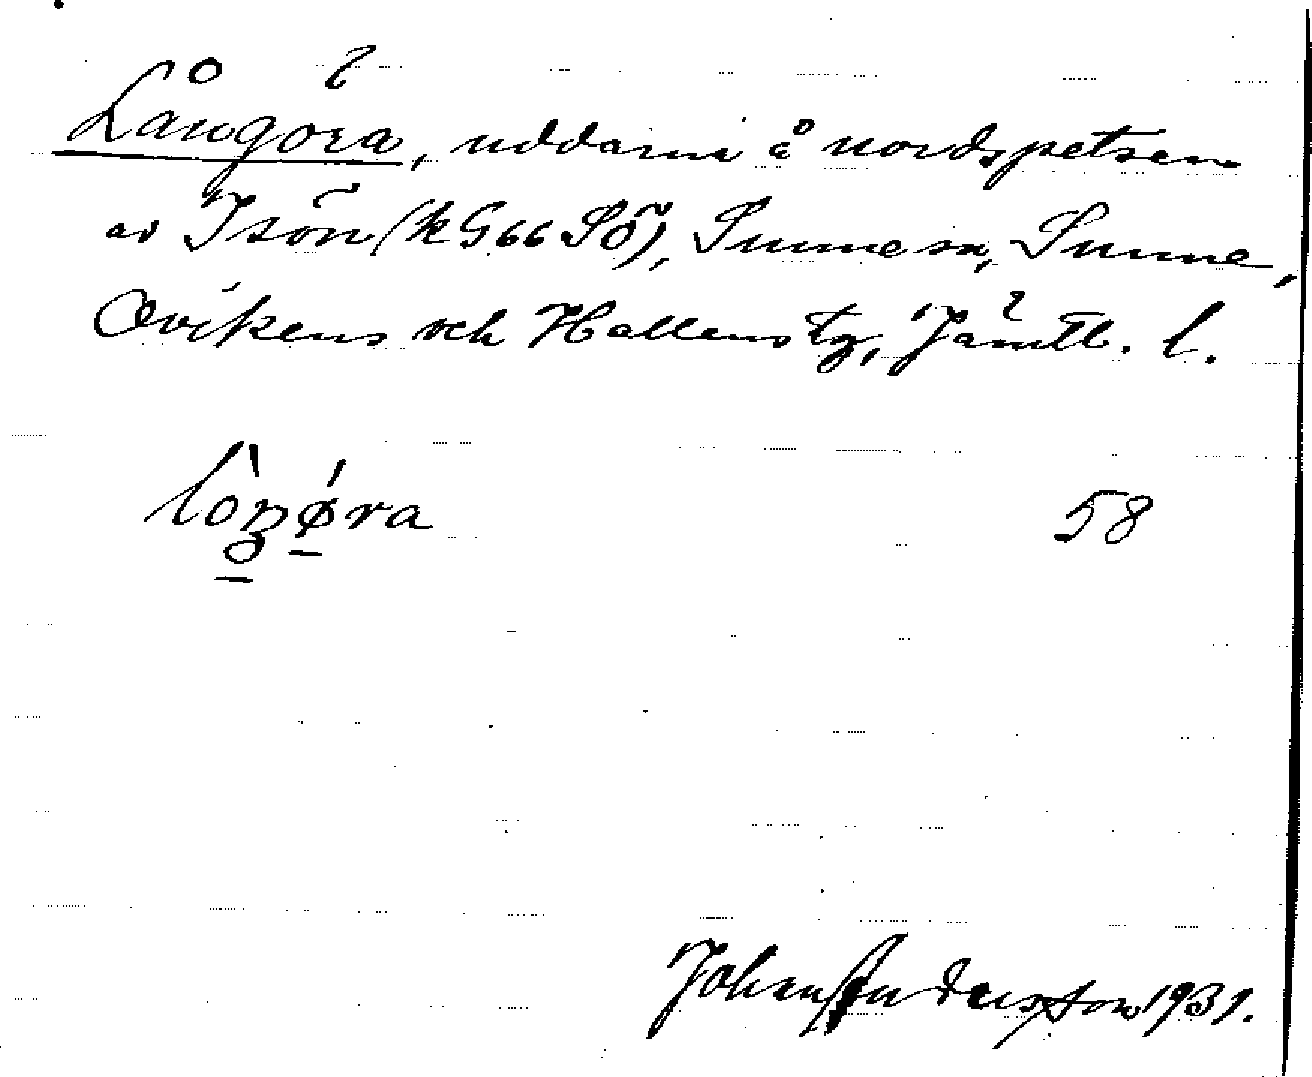 Långöra, uddarna å nordspetsen
av Isön (k G66 SÖ), Sunne sn, Sunne,
Ovikens och Hallens tg, Jämtl. l.
58
Johan Andersson 1931.